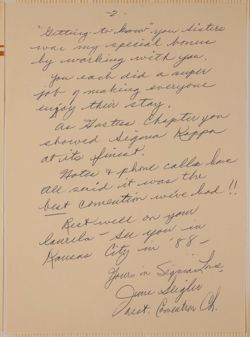 - 2 -
"Getting to know" you sisters
was my special bonus
by working with you.
You each did a super
job of making everyone
enjoy their stay.
As Hostess Chapter you
showed Sigma Kappa
at its finest.
Notes & phone calls have
all said it was the
best convention we've had!!
Rest well on your
laurels - see you in
Kansas City in '88 -
Yours in Sigma Love,
June
Nat. Convention Ch.